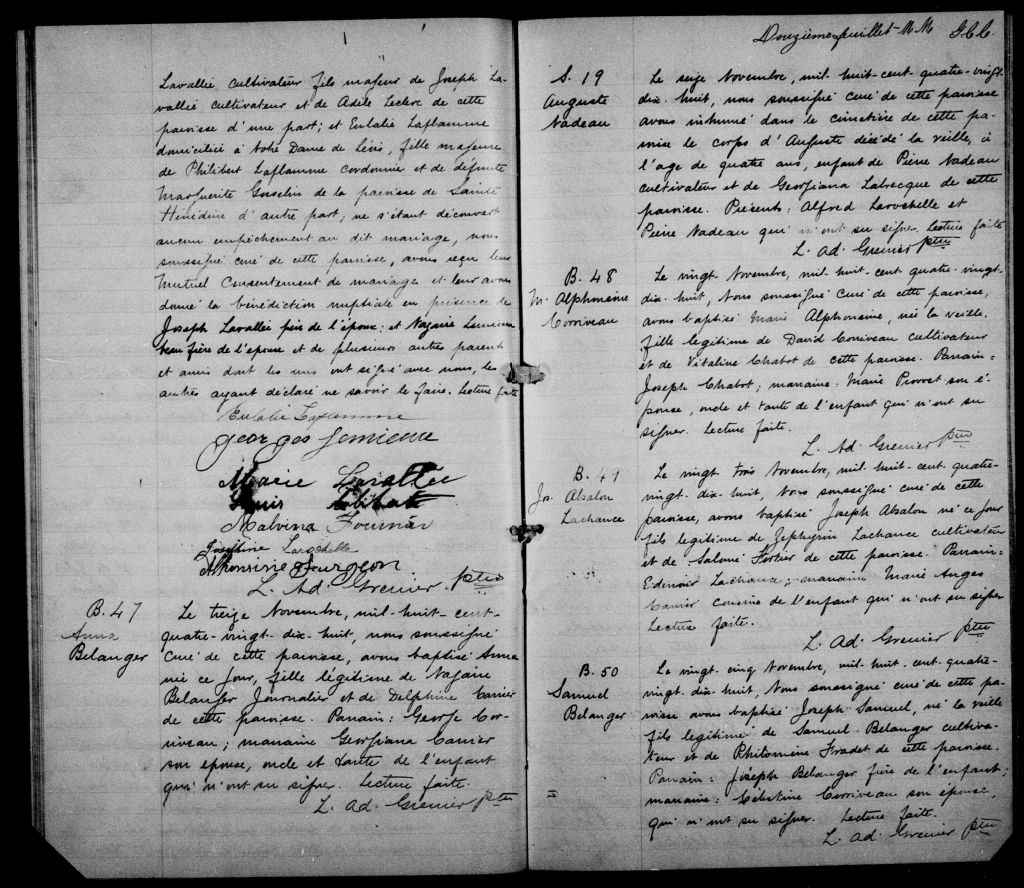 Lavallée cultivateur fils majeur de Joseph La-
vallée cultivateur et de Adèle Leclerc de cette
paroisse d'une part; et Eulalie Laflamme
domiciliée à Notre Dame de Lévis, fille majeure
de Philibert Laflamme cordonnier et de défunte
Marguerite Gosselin de la paroisse de Sainte
Hénédine d'autre part; ne s'étant découvert
aucun empêchement au dit mariage, nous
soussigné curé de cette paroisse, avons reçu leur
mutuel consentement de mariage et leur avons
donné la bénédiction nuptiale en présence de
Joseph Lavallée père de l'époux; et Nazaire Lemieux
beau frère de l'épouse et de plusieurs autres parents
et amis dont les uns ont signé avec nous, les
autres ayant déclaré ne savoir le faire. Lecture faite
Eulalie Laflamme
Georges Lemieux
Marie Lavallée
Malvina Fournier
Joséphine Larochelle
Alphonsine Turgeon
L. Ad. Grenier ptre
B. 47
Anna
Belanger
Le treize Novembre, mil-huit-cent-
quatre-vingt-dix-huit, nous soussigné
curé de cette paroisse, avons baptisé Anna
née ce jour, fille légitime de Nazaire
Belanger Journalier et de Delphine Carrier
de cette paroisse. Parrain: George Cor-
riveau; marraine Georgiana Carrier
son épouse, oncle et tante de l'enfant
qui n'ont su signer. Lecture faite.
L. Ad. Grenier ptre
Douzième feuillet - M M G.C.C.
S. 19
Auguste
Nadeau
Le seize Novembre, mil-huit-cent-quatre-vingt-
dix-huit, nous soussigné curé de cette paroisse
avons inhumé dans le cimetière de cette pa-
roisse le corps d'Auguste décédé la veille, à
l'age de quatre ans, enfant de Pierre Nadeau
cultivateur et de Georgiana Labrecque de cette
paroisse. Présents: Alfred Larochelle et
Pierre Nadeau qui n'ont su signer. Lecture faite
L. Ad. Grenier ptre
B. 48
M. Alphonsine
Corriveau
Le vingt Novembre, mil-huit-cent-quatre-vingt-
dix-huit, Nous soussigné curé de cette paroisse,
avons baptisé Marie Alphonsine, née la veille,
fille légitime de David Corriveau cultivateur
et de Vitaline Chabot de cette paroisse. Parrain:
Joseph Chabot; marraine: Marie Provost son é-
pouse, oncle et tante de l'enfant qui n'ont su
signer. Lecture faite.
L. Ad. Grenier ptre
B. 49
Jos. Absalon
Lachance
Le vingt trois Novembre, mil-huit-cent-quatre-
vingt-dix-huit, Nous soussigné curé de cette
paroisse, avons baptisé Joseph Absalon né ce jour
fils légitime de Zephyrin Lachance cultivateur
et de Salomé Fortier de cette paroisse. Parrain:
Lachance; marraine Marie Anges
Carrier cousine de l'enfant qui n'ont su signer
Lecture faite.
L. Ad. Grenier ptre
B. 50
Samuel
Belanger
Le vingt cinq Novembre, mil-huit-cent-quatre-
vingt-dix-huit, Nous soussigné curé de cette pa-
roisse avons baptisé Joseph Samuel, né la veille
fils légitime de Samuel Belanger cultiva-
teur et de Philomène Fradet de cette paroisse.
Parrain: Joseph Belanger frère de l'enfant;
marraine: Célestine Corriveau son épouse,
qui n'ont su signer. Lecture faite.
L. Ad. Grenier ptre